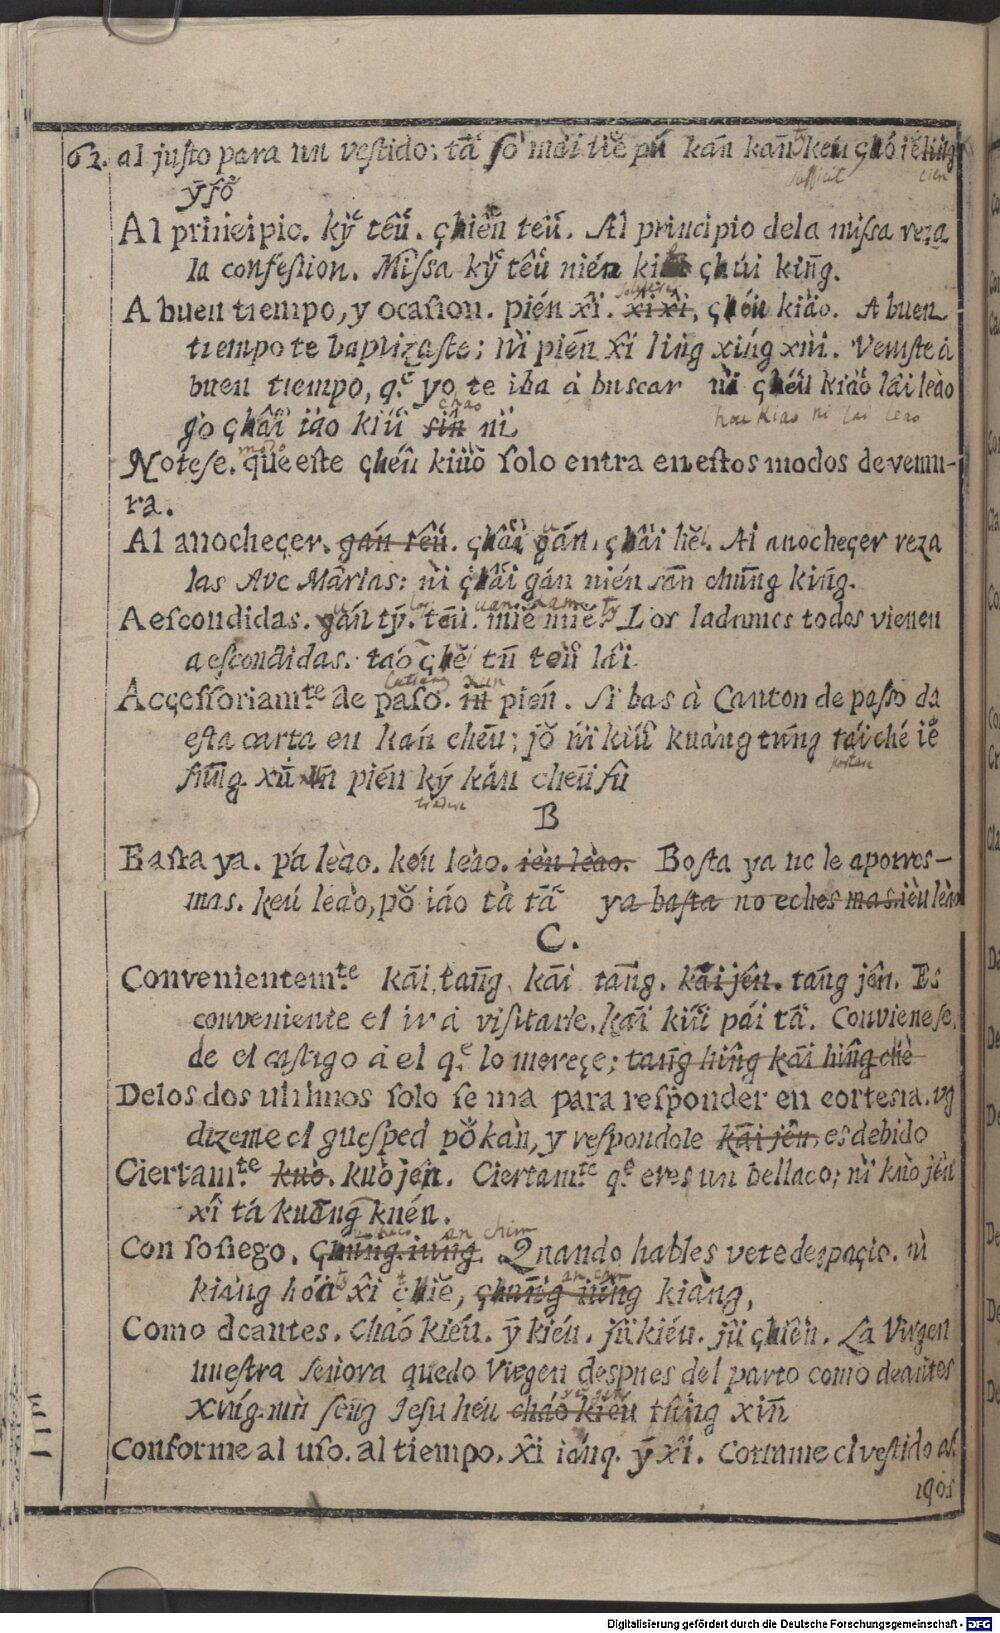 62. al justo para un vestido; tā sò mài tiě pú kān kān keú chó iě lîng
ȳ fǒ
Al principio. ký têû. çhiên teû. Al principio dela missa reza
la confession. Missa ký têû nién çhúi kīng.
A buen tiempo, y ocasion. pién xî. xî xî, çhéu kiào. A buen
tiempo te baptizaste; nì pién xî lìng xíng xùi. Veniste à
buen tiempo, q.e yo te iba à buscar nì çhéu kiào lâi leào
gò çhâi iáo kiú sîn nì
hau kiao ni lai leao
Notese. que este çhéu kiúò solo entra en estos modos de ventu-
ra.
Al anocheçer. gán têû. çhâi gán. çhâi hě. Al anocheçer reza
las Ave Marias: nì çhâi gán nién sān chūng kīng.
A escondidas. gán tý. teū. mié mié. Los ladrones todos vienen
a escondidas. táo çhě tū teū lâi
Acçessoriam.te de paso. pién. Si bas à Canton de passo da
esta carta en kán cheū; jǒ nì kiú kuàng tūng tái ché iě
portare
fūng xū ūn pién ký kán cheū fû
tradere
B
Basta ya. pá leào. keú leào. ièu leào. Basta ya no le aporres-
mas. keú leào, pǒ iáo tà tā ya basta no eches mas. ièu leào
C.
Convenientem.te kāi tāng. kāi tāng. kāi jên. tāng jên. Es
conveniente el ir à visitarle. kāi kiú pái tā. Convienese.
de el castigo à el q.e lo mereçe; tāng hîng kāi hîng chè
Delos dos ultimos solo se usa para responder en cortesia. vg
dizeme el guesped pǒ kàn, y respondole kāi jên. es debido
Ciertam.te kuò. kuò jên. Ciertam.te q.e eres un bellaco; nì kuò jên
xî tá kuāng kuén.
Con sosiego. çhūng iūng. Quando hables vete despaçio. nì
kiàng hóa xî chiě, çhāng iúng kiàng,
Como de antes. Chaó kiéu. ȳ kiéu. jû kiéu. jû çhiên. La Virgen
nuestra señora quedo Virgen despues del parto como de antes
Xíng mù sēng Jesu héu cháo kiéu tûng xīn
Conforme al uso. al tiempo. xî iáng. ȳ xî. Cortume el vestido al